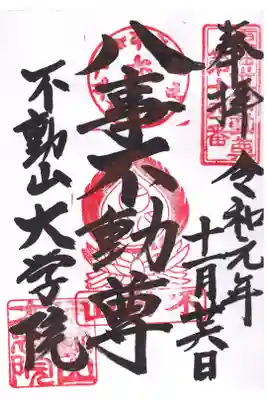 奉拝 令和元年
十一月廿六日
八事不動尊
不動山大学院